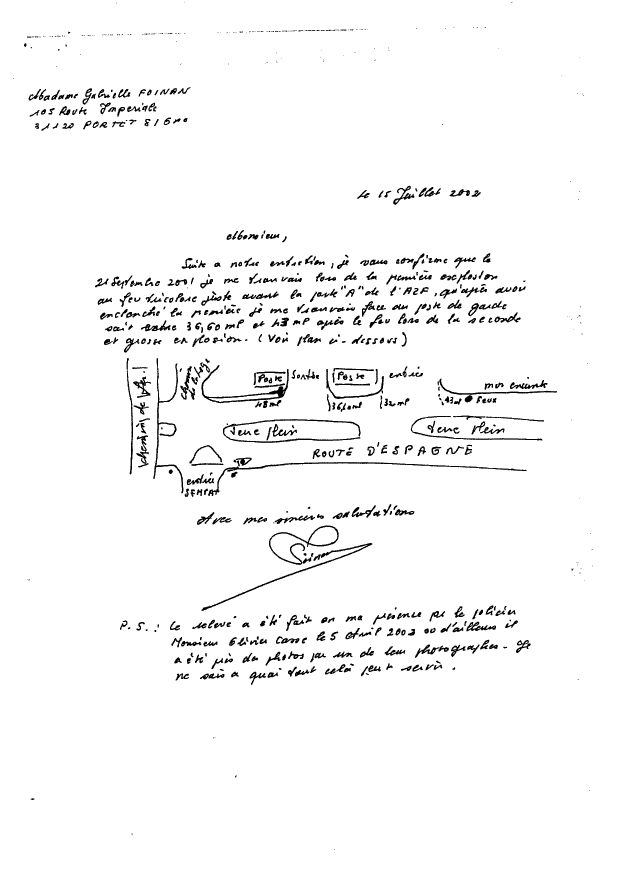 Madame Gabrielle FOINAN
105 Route Imperiale
31120 PORTET S/GNE
Le 15 Juillet 2002
Monsieur,
Suite a notre entretien, je vous confirme que le
21 Septembre 2001 je me trouvais lors de la première explosion
au feu tricolore juste avant la porte "A" de l'AZF, qu'après avoir
enclenché la première je me trouvais face au poste de garde
soit entre 36,60 ml et 43 ml après le feu lors de la seconde
et grosse explosion. (Voir plan ci-dessous)
chemin de
chemin
de la
Poste
Sortie
Poste
entrée
mur enceinte
48 ml
36,60 ml
32 ml
43 ml
Feux
Terre Plein
Terre Plein
ROUTE D'ESPAGNE
entrée
SEMVAT
Avec mes sincères salutations
Foinan
P.S.: Le relevé a été fait en ma présence par le policier
Monsieur Olivier Casse le 5 Avril 2002 où d'ailleurs il
a été pris des photos par un de leur photographes. Je
ne sais a quoi tout celà peut servir.